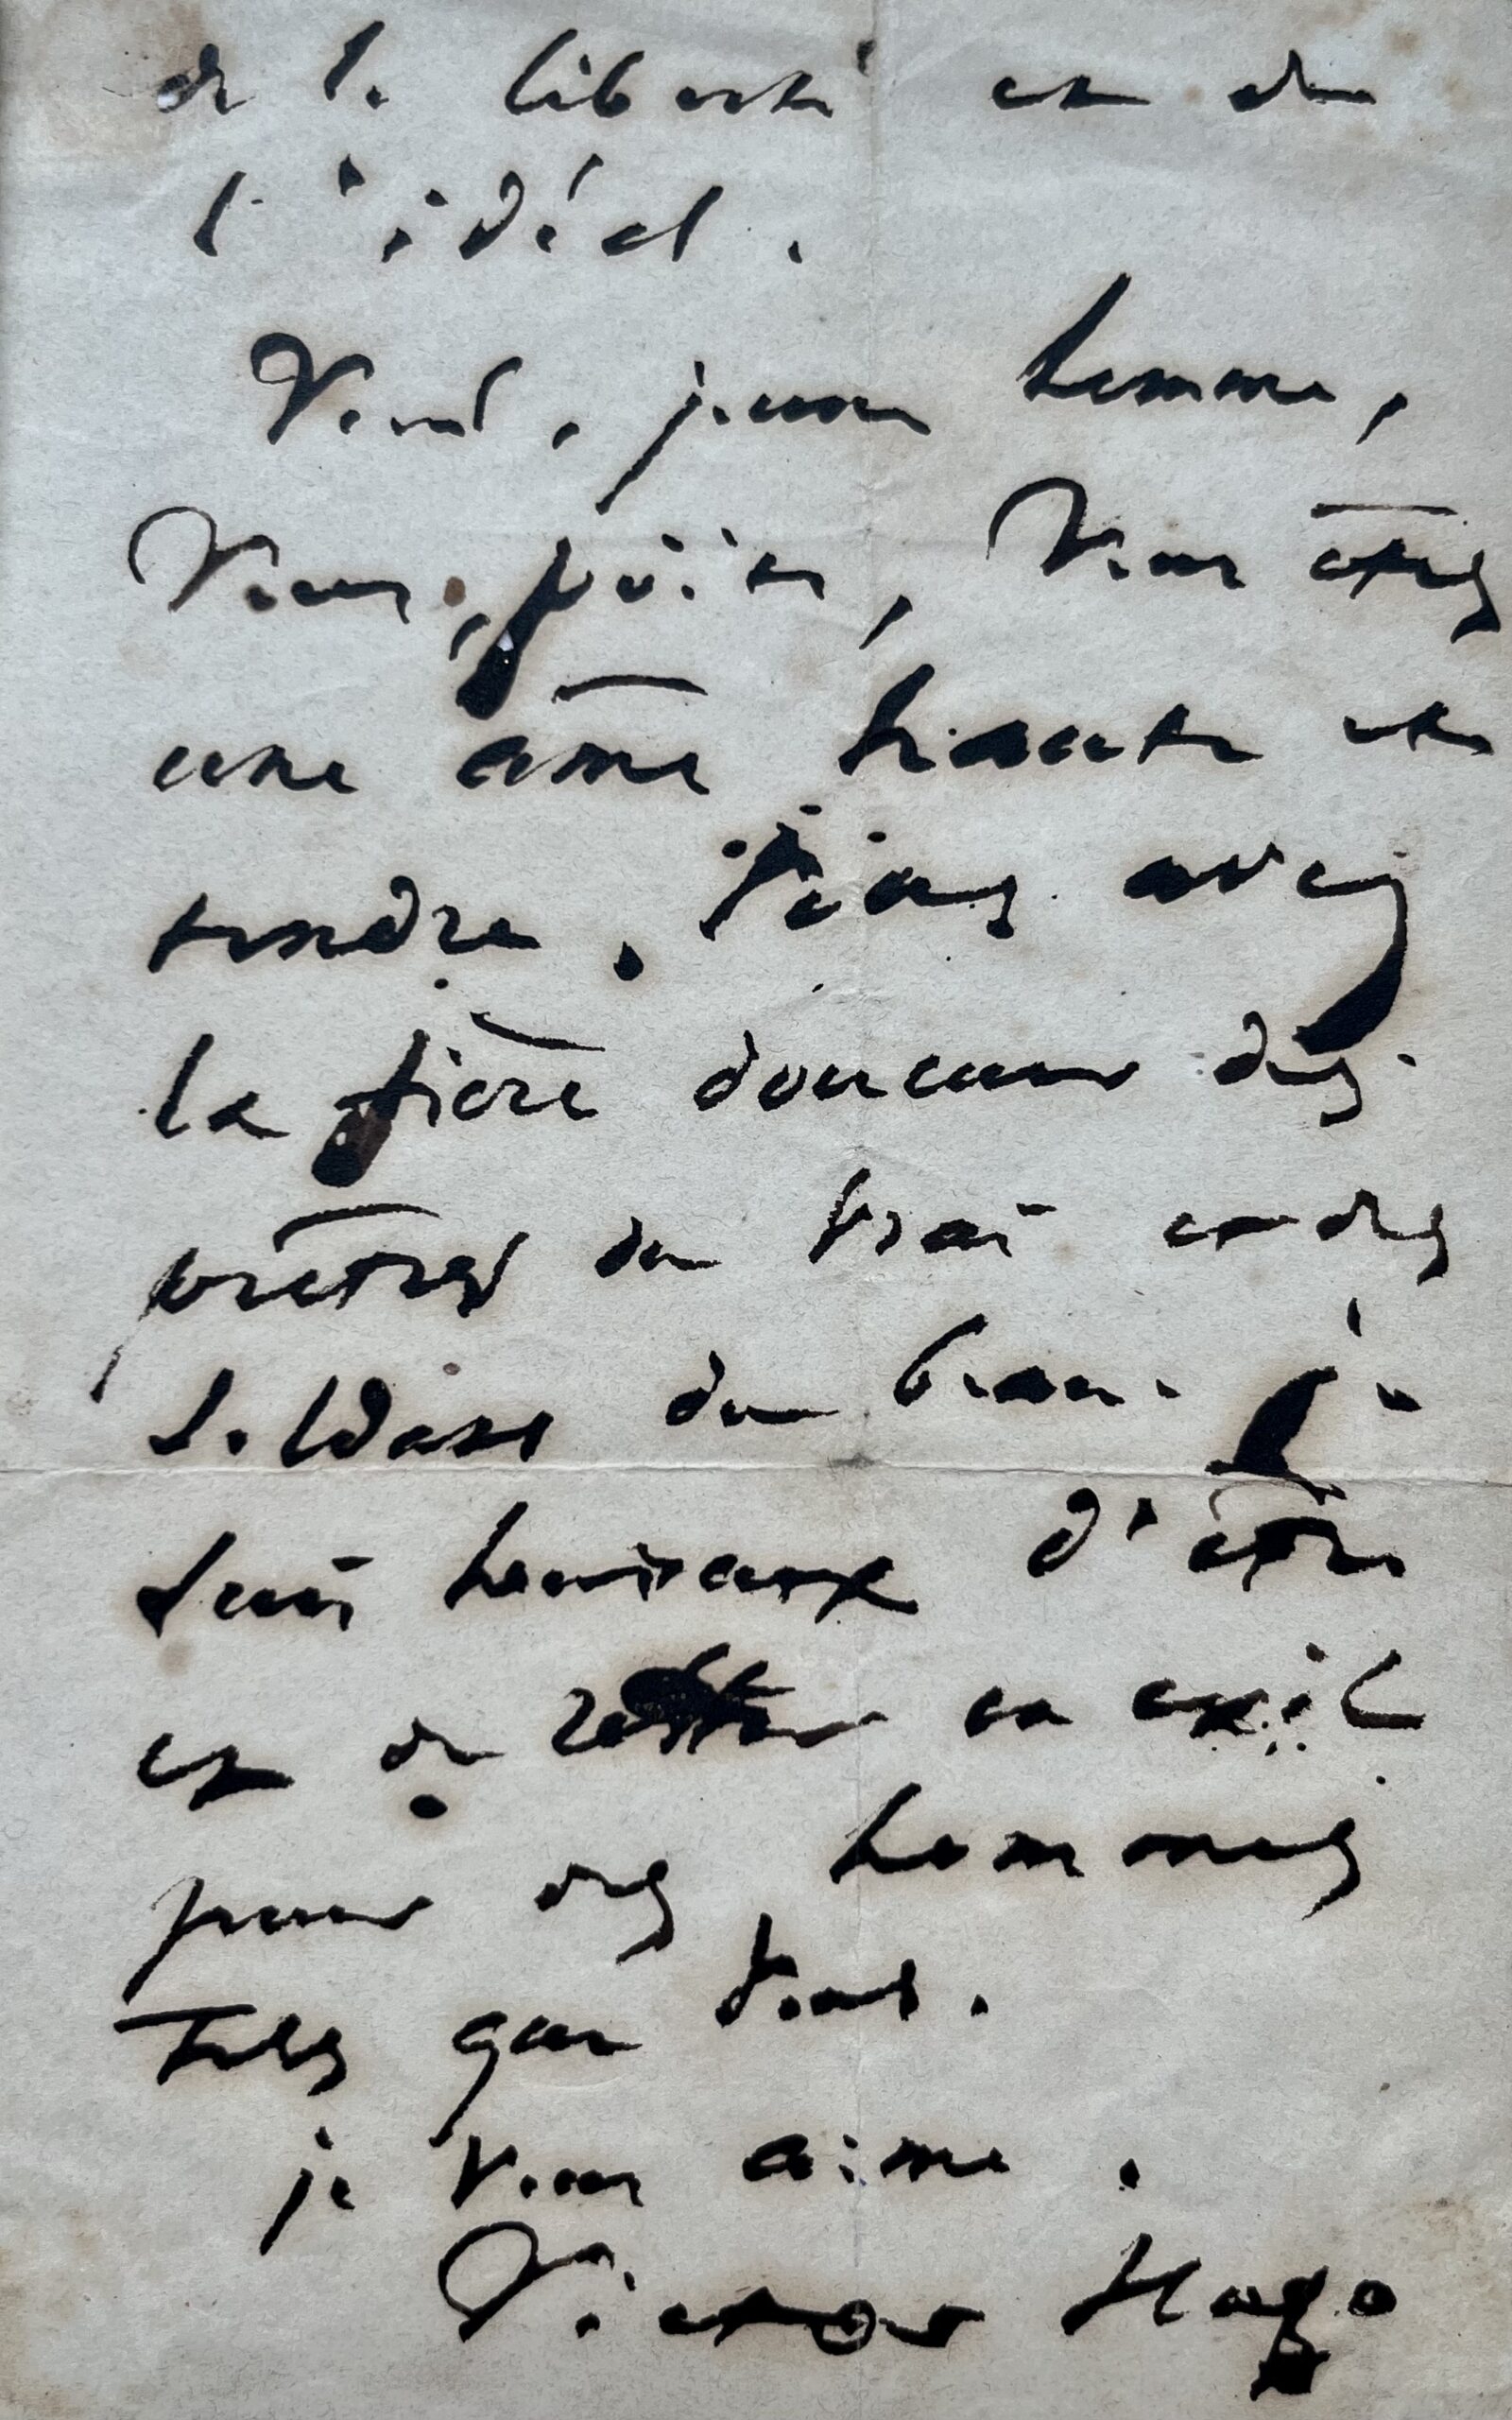 de la liberté et de
l'idéal.
Vous, jeune homme,
Vous, poëte, vous êtes
une âme haute et
tendre. Vous avez
la fière douceur des
prêtres du vrai et des
soldats du beau. Je
suis heureux d'être
et de rester en exil
pour des hommes
tels que vous.
je vous aime.
Victor Hugo